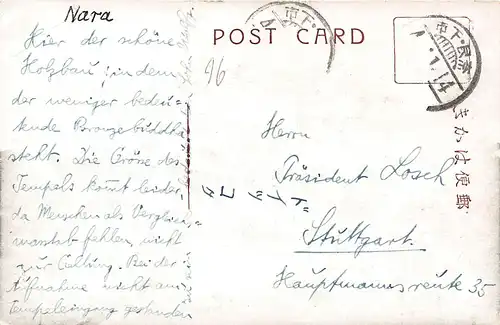 Nara
Hier der schöne
Holzbau, in dem
der weniger bedeu-
tende Bronzebuddha
steht. Die Größe des
Tempels kommt leider,
da Menschen als Vergleichs-
masstab fehlen, nicht
zur Geltung. Bei der
Aufnahme nicht am
Tempeleingang gestanden
POST CARD
96
きかは便郵
Herrn
Präsident Losch
ドイツ
Stuttgart.
Hauptmannsreute 35